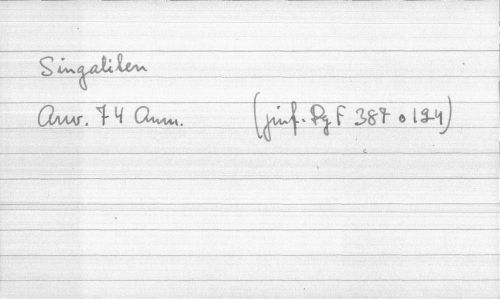 Singaliken
Anv. 74 Anm. (jmf. Pg F 387 o 124)